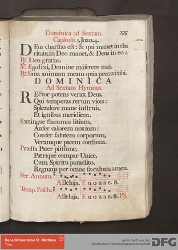 Dominica ad Sextam.
Capitulum 1. Joan. 4.
Deus charitas est: & qui manet in cha
ritate, in Deo manet, & Deus in eo.
℟. Deo gratias.
℣. Ego dixi, Domine miserere mei.
℟. Sana animam meam quia peccavi tibi.
DOMINICA
Ad Sextam Hymnus.
Rector potens verax Deus,
Qui temperas rerum vices:
Splendore mane instruis,
Et ignibus meridiem.
Extingue flammas litium,
Aufer calorem noxium:
Confer salutem corporum,
Veramque pacem cordium.
Præsta Pater piissime,
Patrique compar Unice,
Cum Spiritu paraclito,
Regnans per omne sæculum. amen.
Per Annum
Alleluja. E u o u a e. 8.
Temp. Pasch.
Alleluja. E u o u a e. 8. Ps.